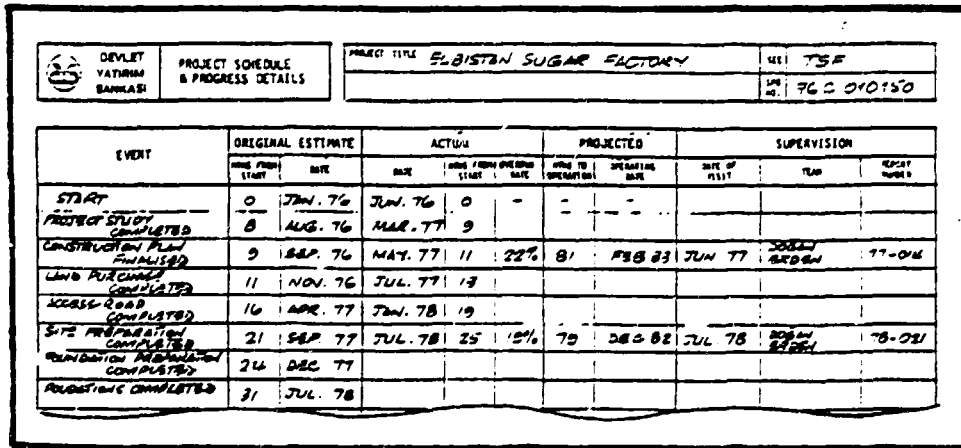 DEVLET
YATIRIM
BANKASI
PROJECT SCHEDULE
& PROGRESS DETAILS
PROJECT TITLE ELBISTAN SUGAR FACTORY
SEE TSF
NO. 76
EVENT ORIGINAL ESTIMATE ACTUAL PROJECTED SUPERVISION
MONS FROM START DATE DATE MONS FROM START OVERRUN RATE MONS TO OPERATION OPERATING DATE DATE OF VISIT TEAM REPORT NUMBER
START 0 JAN. 76 JUN. 76 0 - - -
PROJECT STUDY COMPLETED 8 AUG. 76 MAR. 77 9
CONSTRUCTION PLAN FINALISED 9 SEP. 76 MAY. 77 11 22% 81 FEB 83 JUN 77 DOGAN ERDEN 77-016
LAND PURCHASE COMPLETED 11 NOV. 76 JUL. 77 13
ACCESS ROAD COMPLETED 16 APR. 77 JAN. 78 19
SITE PREPARATION COMPLETED 21 SEP. 77 JUL. 78 25 19% 79 DEC 82 JUL 78 DOGAN ERDEN 78-021
FOUNDATION PREPARATION COMPLETED 24 DEC 77
FOUNDATIONS COMPLETED 31 JUL. 78